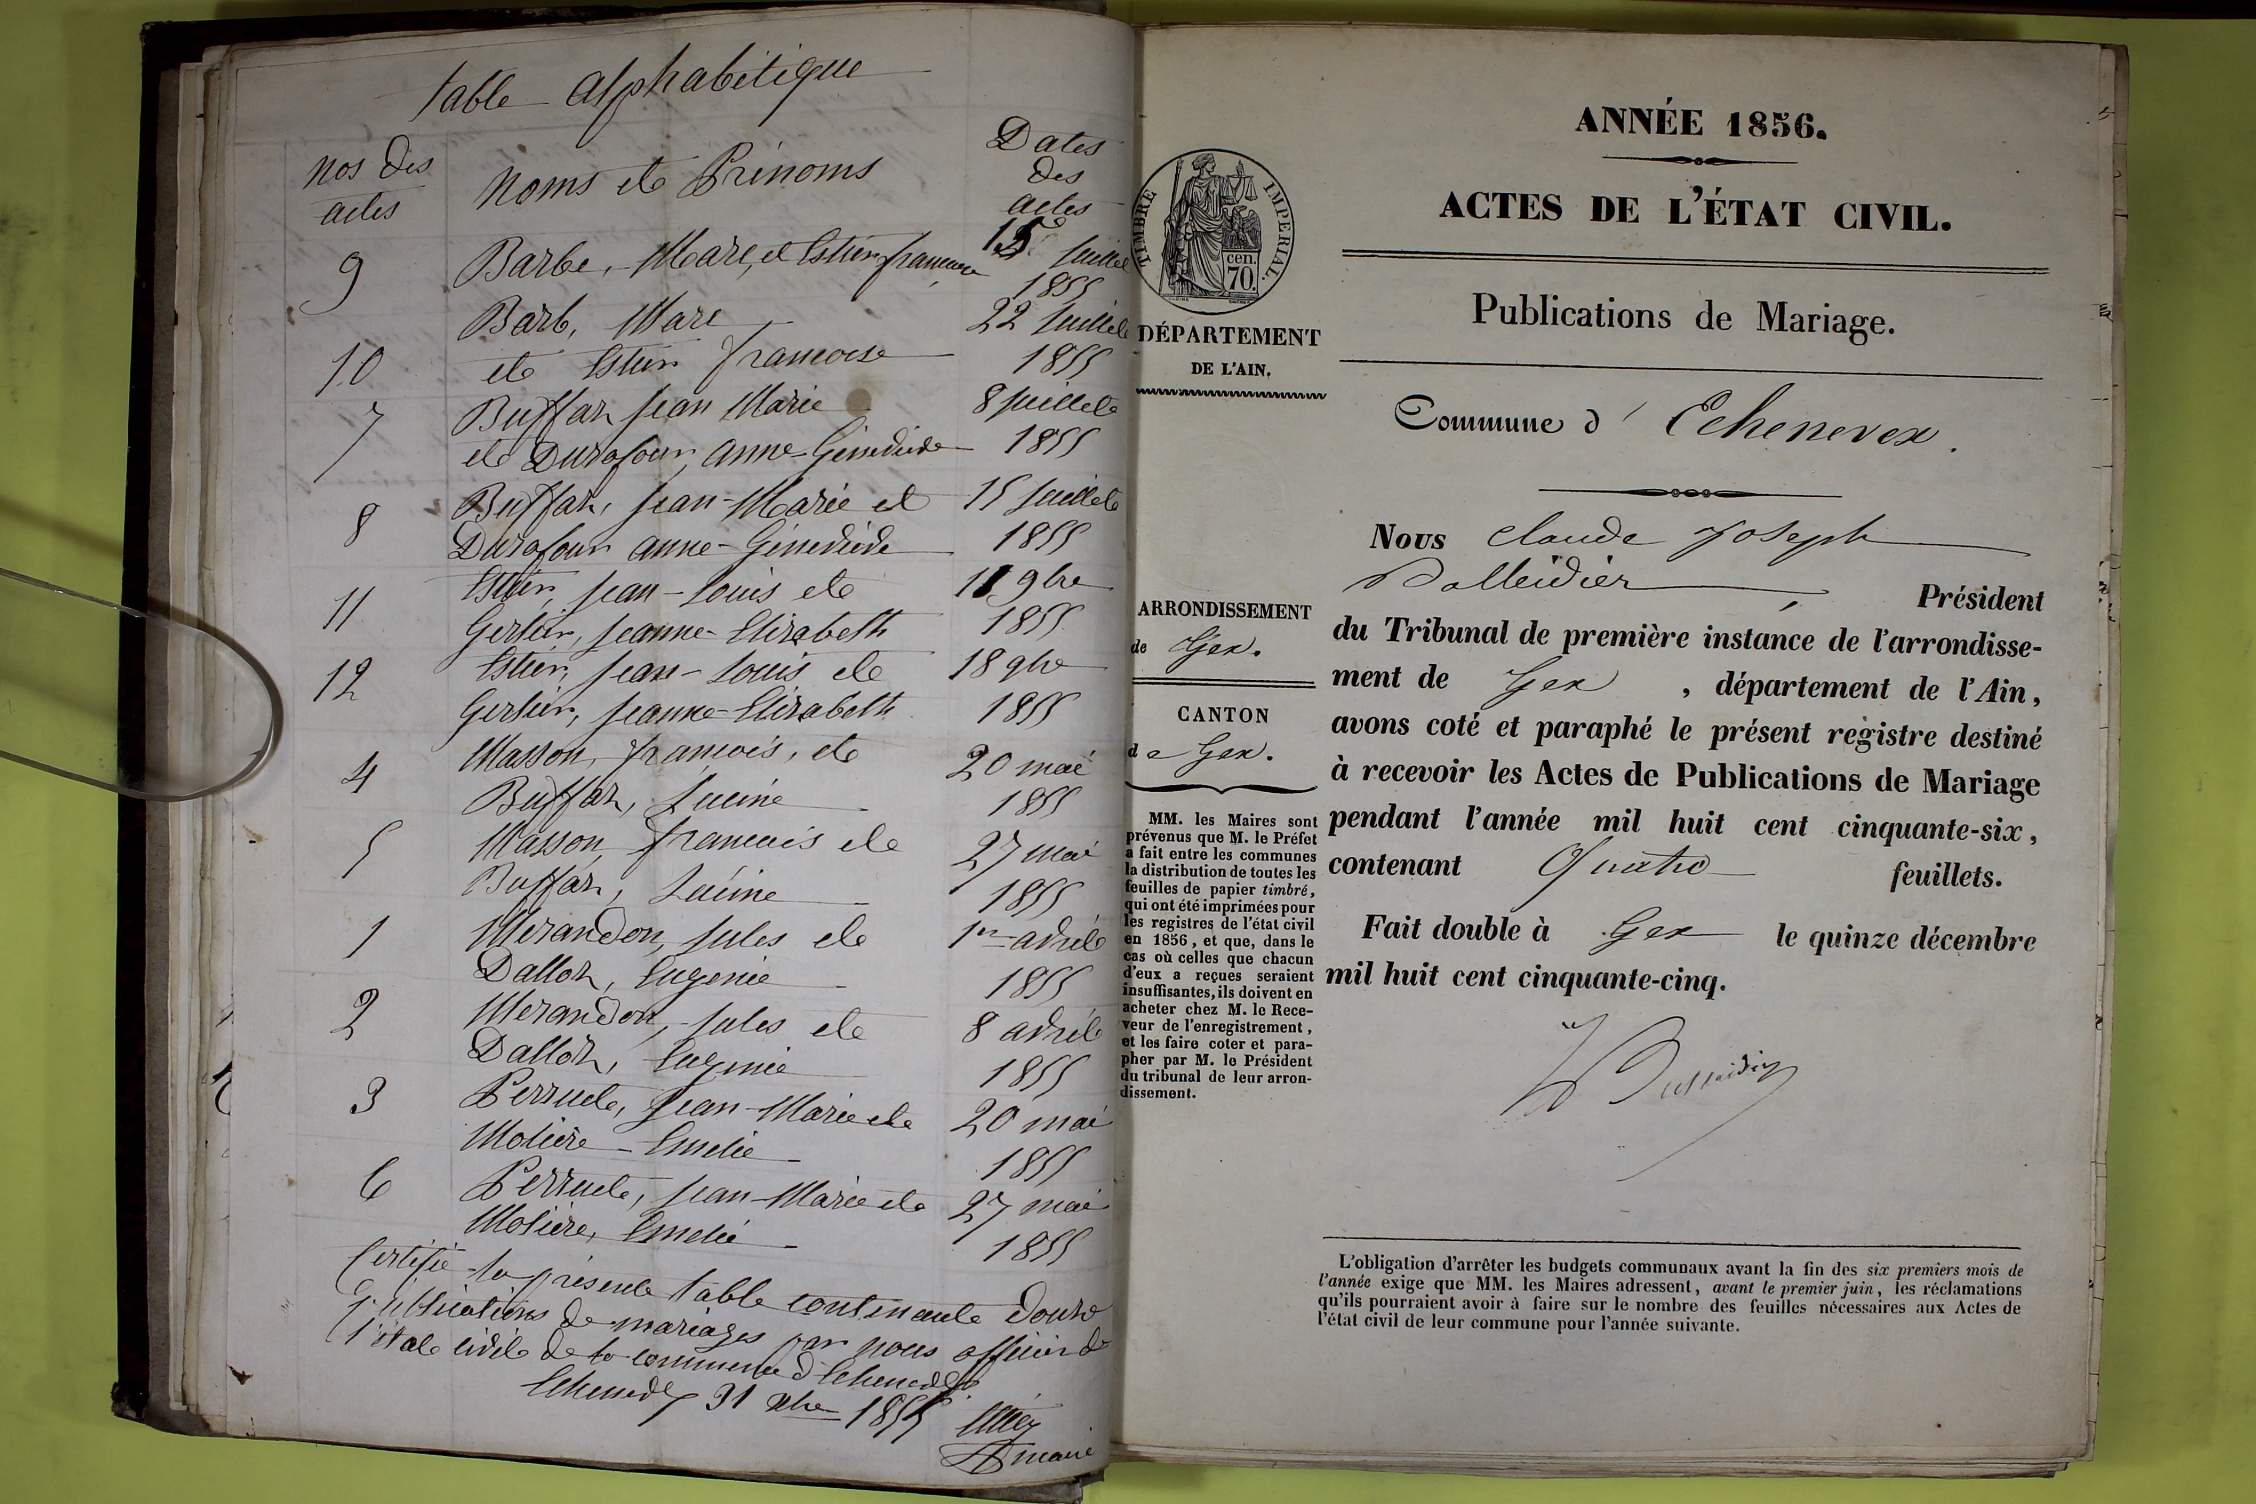 table alphabétique
Nos des actes
Noms et Prénoms
Dates des actes
9 Barbe, Marc, et Estier françoise 15 Juillet
1855
Barb, Marc 22 Juillet
10 et Estier françoise 1855
7 Buffaz Jean Marie 8 Juillet
et Durafour, Anne-Genevieve 1855
8 Buffaz, Jean-Marie et 15 Juillet
Durafour Anne-Genevieve 1855
11 Estier, Jean-Louis et 11 9bre
Gerlier, Jeanne-Elizabeth 1855
12 Estier, Jean-Louis et 18 9bre
Gerlier, Jeanne-Elizabeth 1855
4 Masson, françois, et 20 mai
Buffaz, Lucine 1855
5 Masson, françois et 27 mai
Buffaz, Lucine 1855
1 Merandon, Jules et 1er avril
Dalloz, Eugenie 1855
2 Merandon, Jules et 8 avril
Dalloz, Eugenie 1855
3 Perruet, Jean-Marie et 20 mai
Moliere Emelie 1855
6 Perruet, Jean-Marie et 27 mai
Moliere, Emelie 1855
Certifié la présente table contenante douze
publications de mariages par nous officier de
l'état civil de la commune d'Echenevex
Echenevex 31 xbre 1855
maire
ANNÉE 1856.
ACTES DE L'ÉTAT CIVIL.
Publications de Mariage.
Commune d' Echenevex.
TIMBRE IMPÉRIAL.
cen.
70.
DÉPARTEMENT
DE L'AIN.
ARRONDISSEMENT
de Gex.
CANTON
de Gex.
MM. les Maires sont
prévenus que M. le Préfet
a fait entre les communes
la distribution de toutes les
feuilles de papier timbré,
qui ont été imprimées pour
les registres de l'état civil
en 1856, et que, dans le
cas où celles que chacun
d'eux a reçues seraient
insuffisantes, ils doivent en
acheter chez M. le Rece-
veur de l'enregistrement,
et les faire coter et para-
pher par M. le Président
du tribunal de leur arron-
dissement.
Nous Claude Joseph
Balleidier, Président
du Tribunal de première instance de l'arrondisse-
ment de Gex, département de l'Ain,
avons coté et paraphé le présent registre destiné
à recevoir les Actes de Publications de Mariage
pendant l'année mil huit cent cinquante-six,
contenant Quatre feuillets.
Fait double à Gex le quinze décembre
mil huit cent cinquante-cinq.
L'obligation d'arrêter les budgets communaux avant la fin des six premiers mois de
l'année exige que MM. les Maires adressent, avant le premier juin, les réclamations
qu'ils pourraient avoir à faire sur le nombre des feuilles nécessaires aux Actes de
l'état civil de leur commune pour l'année suivante.